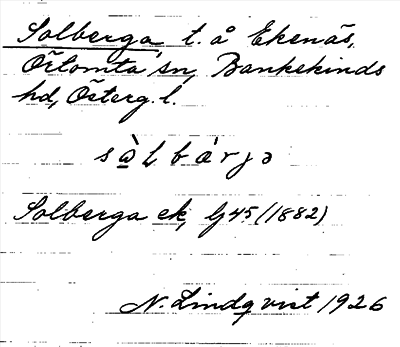 Solberga, t. å Ekenäs,
Örtomta sn, Bankekinds
hd, Österg. l.
sὰlbárjə
Solberga ek, Gj 45 (1882)
N. Lindqvist 1926